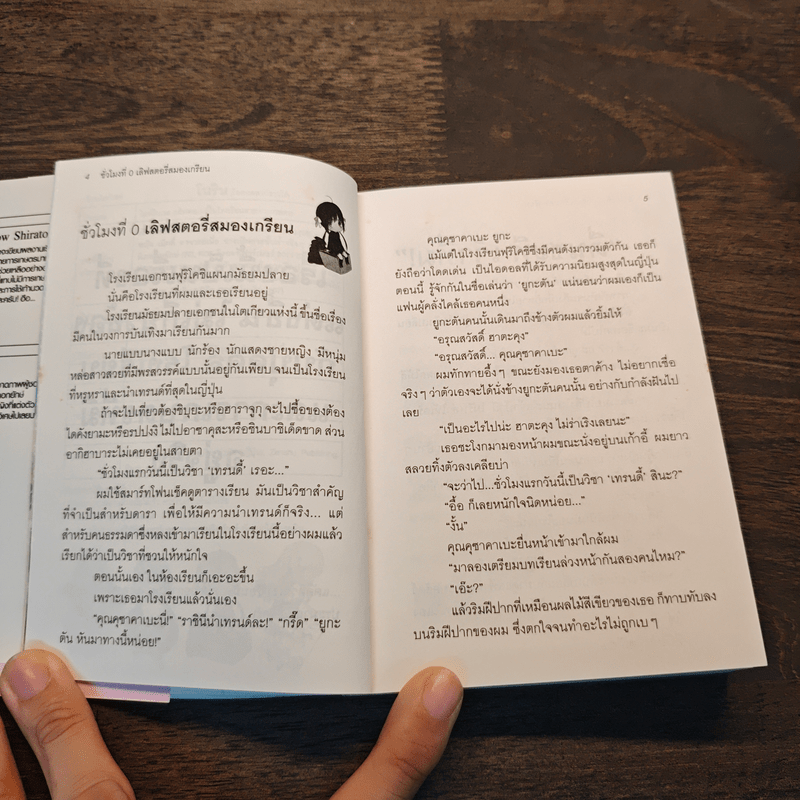 ow Shirato
๔ ชั่วโมงที่ 0 เลิฟสตอรี่สมองเกรียน
ชั่วโมงที่ 0 เลิฟสตอรี่สมองเกรียน
โรงเรียนเอกชนฟุริโคชิแผนกมัธยมปลาย
นั่นคือโรงเรียนที่ผมและเธอเรียนอยู่
โรงเรียนมัธยมปลายเอกชนในโตเกียวแห่งนี้ ขึ้นชื่อเรื่อง
มีคนในวงการบันเทิงมาเรียนกันมาก
นายแบบนางแบบ นักร้อง นักแสดงชายหญิง มีหนุ่ม
หล่อสาวสวยที่มีพรสวรรค์แบบนั้นอยู่กันเพียบ จนเป็นโรงเรียน
ที่หรูหราและนำเทรนด์ที่สุดในญี่ปุ่น
ถ้าจะไปเที่ยวต้องชิบุยะหรือฮาราจูกุ จะไปซื้อของต้อง
ไดคังยามะหรือรปปงงิ ไม่ไปอาซาคุสะหรือชินบาชิเด็ดขาด ส่วน
อากิฮาบาระไม่เคยอยู่ในสายตา
“ชั่วโมงแรกวันนี้เป็นวิชา ‘เทรนดี้’ เรอะ...”
ผมใช้สมาร์ทโฟนเช็คดูตารางเรียน มันเป็นวิชาสำคัญ
ที่จำเป็นสำหรับดารา เพื่อให้มีความนำเทรนด์ก็จริง... แต่
สำหรับคนธรรมดาซึ่งหลงเข้ามาเรียนในโรงเรียนนี้อย่างผมแล้ว
เรียกได้ว่าเป็นวิชาที่ชวนให้หนักใจ
ตอนนั้นเอง ในห้องเรียนก็เอะอะขึ้น
เพราะเธอมาโรงเรียนแล้วนั่นเอง
“คุณคุซาคาเบะนี่!” “ราชินีนำเทรนด์ละ!” “กรี๊ด” “ยูกะ
ตัน หันมาทางนี้หน่อย!”
5
คุณคุซาคาเบะ ยูกะ
แม้แต่ในโรงเรียนฟุริโคชิซึ่งมีคนดังมารวมตัวกัน เธอก็
ยังถือว่าโดดเด่น เป็นไอดอลที่ได้รับความนิยมสูงสุดในญี่ปุ่น
ตอนนี้ รู้จักกันในชื่อเล่นว่า ‘ยูกะตัน’ แน่นอนว่าผมเองก็เป็น
แฟนผู้คลั่งไคล้เธอคนหนึ่ง
ยูกะตันคนนั้นเดินมาถึงข้างตัวผมแล้วยิ้มให้
“อรุณสวัสดิ์ ฮาตะคุง”
“อรุณสวัสดิ์... คุณคุซาคาเบะ”
ผมทักทายอึ้งๆ ขณะยังมองเธอตาค้าง ไม่อยากเชื่อ
จริงๆ ว่าตัวเองจะได้นั่งข้างยูกะตันคนนั้น อย่างกับกำลังฝันไป
เลย
“เป็นอะไรไปน่ะ ฮาตะคุง ไม่ร่าเริงเลยนะ”
เธอชะโงกมามองหน้าผมขณะนั่งอยู่บนเก้าอี้ ผมยาว
สลวยทิ้งตัวลงเคลียบ่า
“จะว่าไป...ชั่วโมงแรกวันนี้เป็นวิชา ‘เทรนดี้’ สินะ?”
“อื้อ ก็เลยหนักใจนิดหน่อย...”
“งั้น”
คุณคุซาคาเบะยื่นหน้าเข้ามาใกล้ผม
“มาลองเตรียมบทเรียนล่วงหน้ากันสองคนไหม?”
“เอ๊ะ?”
แล้วริมฝีปากที่เหมือนผลไม้สีเขียวของเธอ ก็ทาบทับลง
บนริมฝีปากของผม ซึ่งตกใจจนทำอะไรไม่ถูกเบๆ